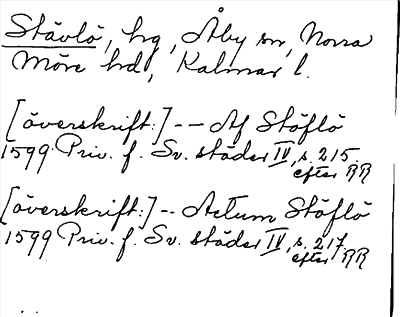 Stävlö, hg, Åby sn, Norra
Möre hd, Kalmar l.
[överskrift:] -- Af Stöflö
1599 Priv. f. Sv. städer IV, s. 215.
efter RR
[överskrift:] -- Actum Stöflö
1599 Priv. f. Sv. städer IV, s. 217,
efter RR